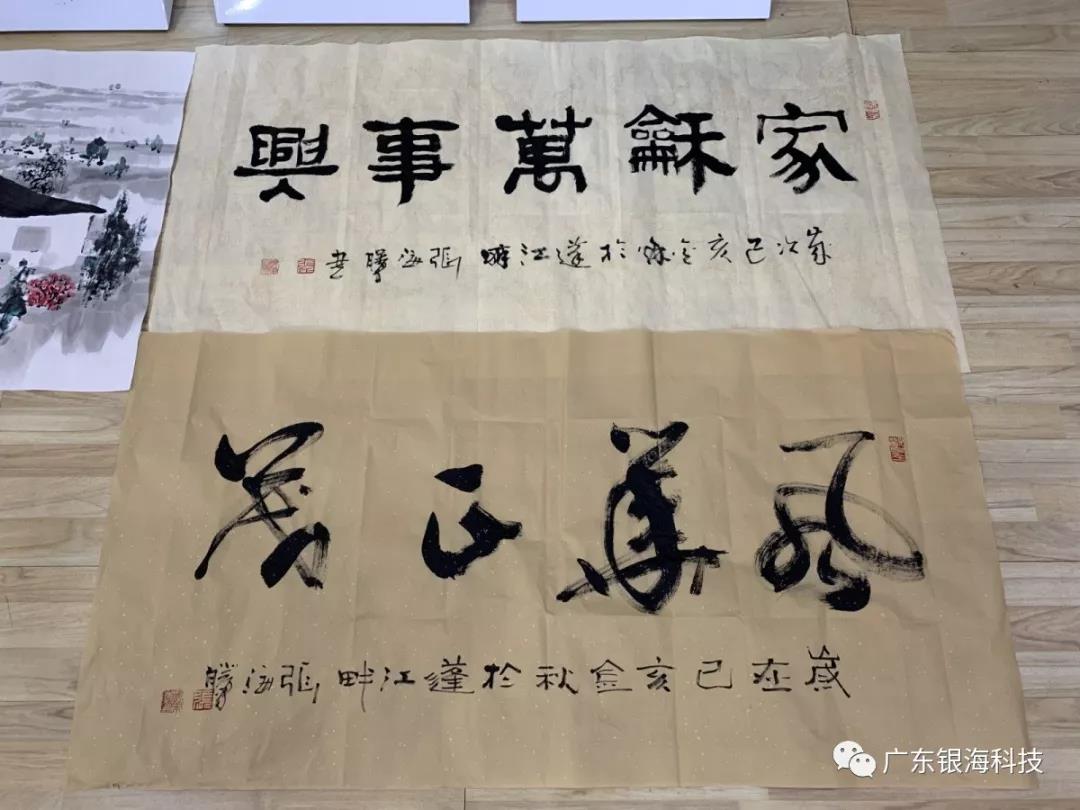 家龢萬事興
歲次己亥金秋於蓬江畔 張海勝書
風華正茂
歲在己亥金秋於蓬江畔張海勝
广东银海科技